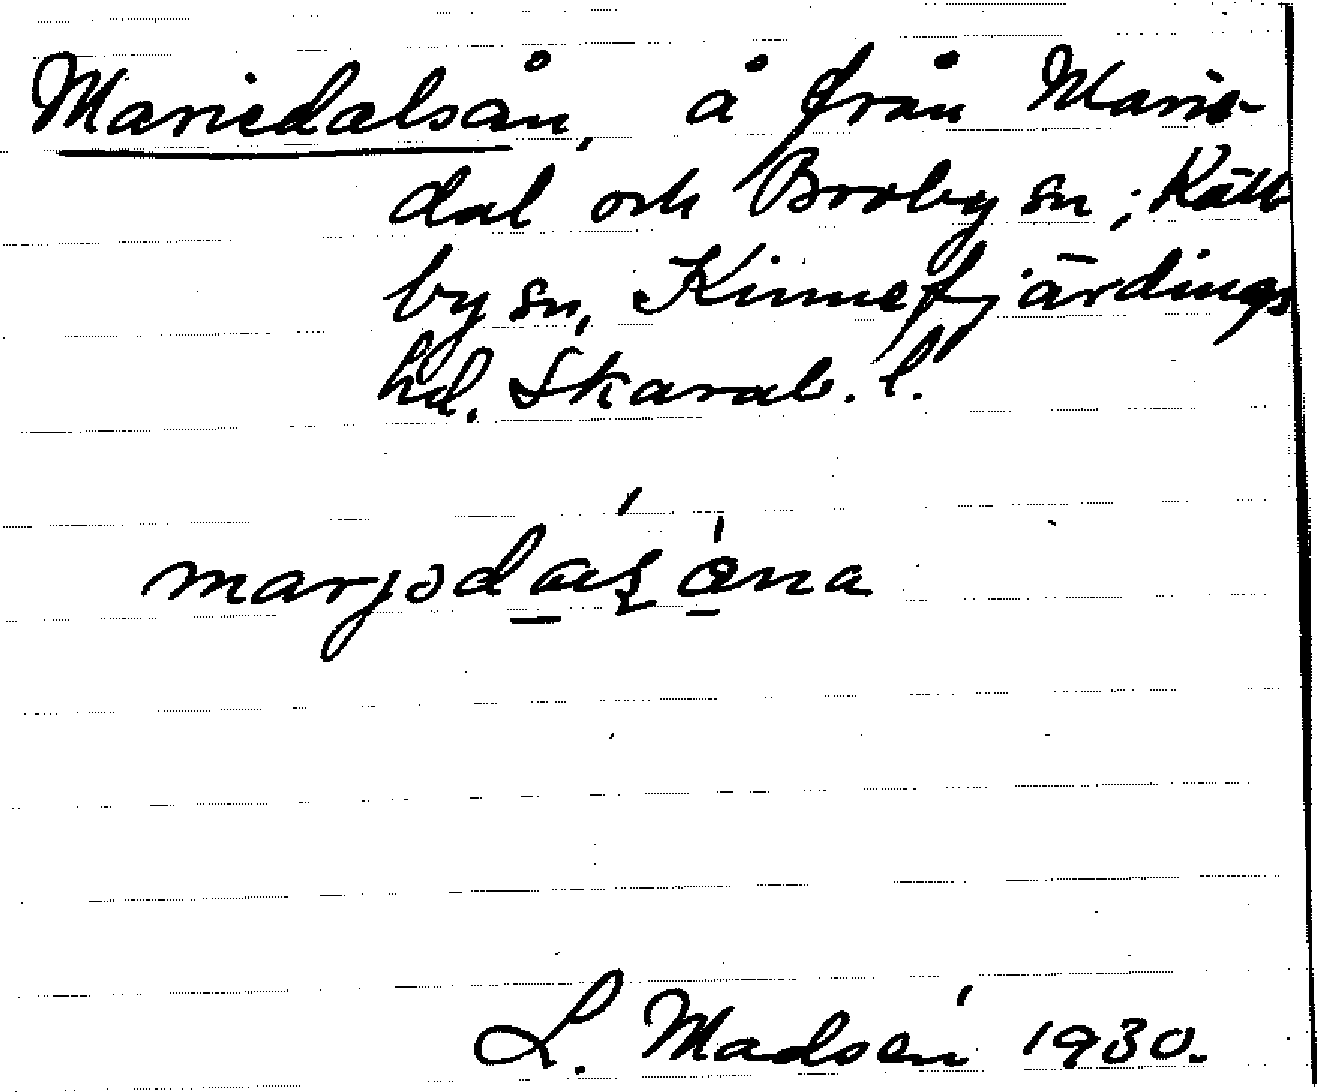 Mariedalsån, å från Marie-
dal och Broby sn; Käll-
by sn, Kinnefjärdings
hd. Skarab. l.
L. Madsén 1930.